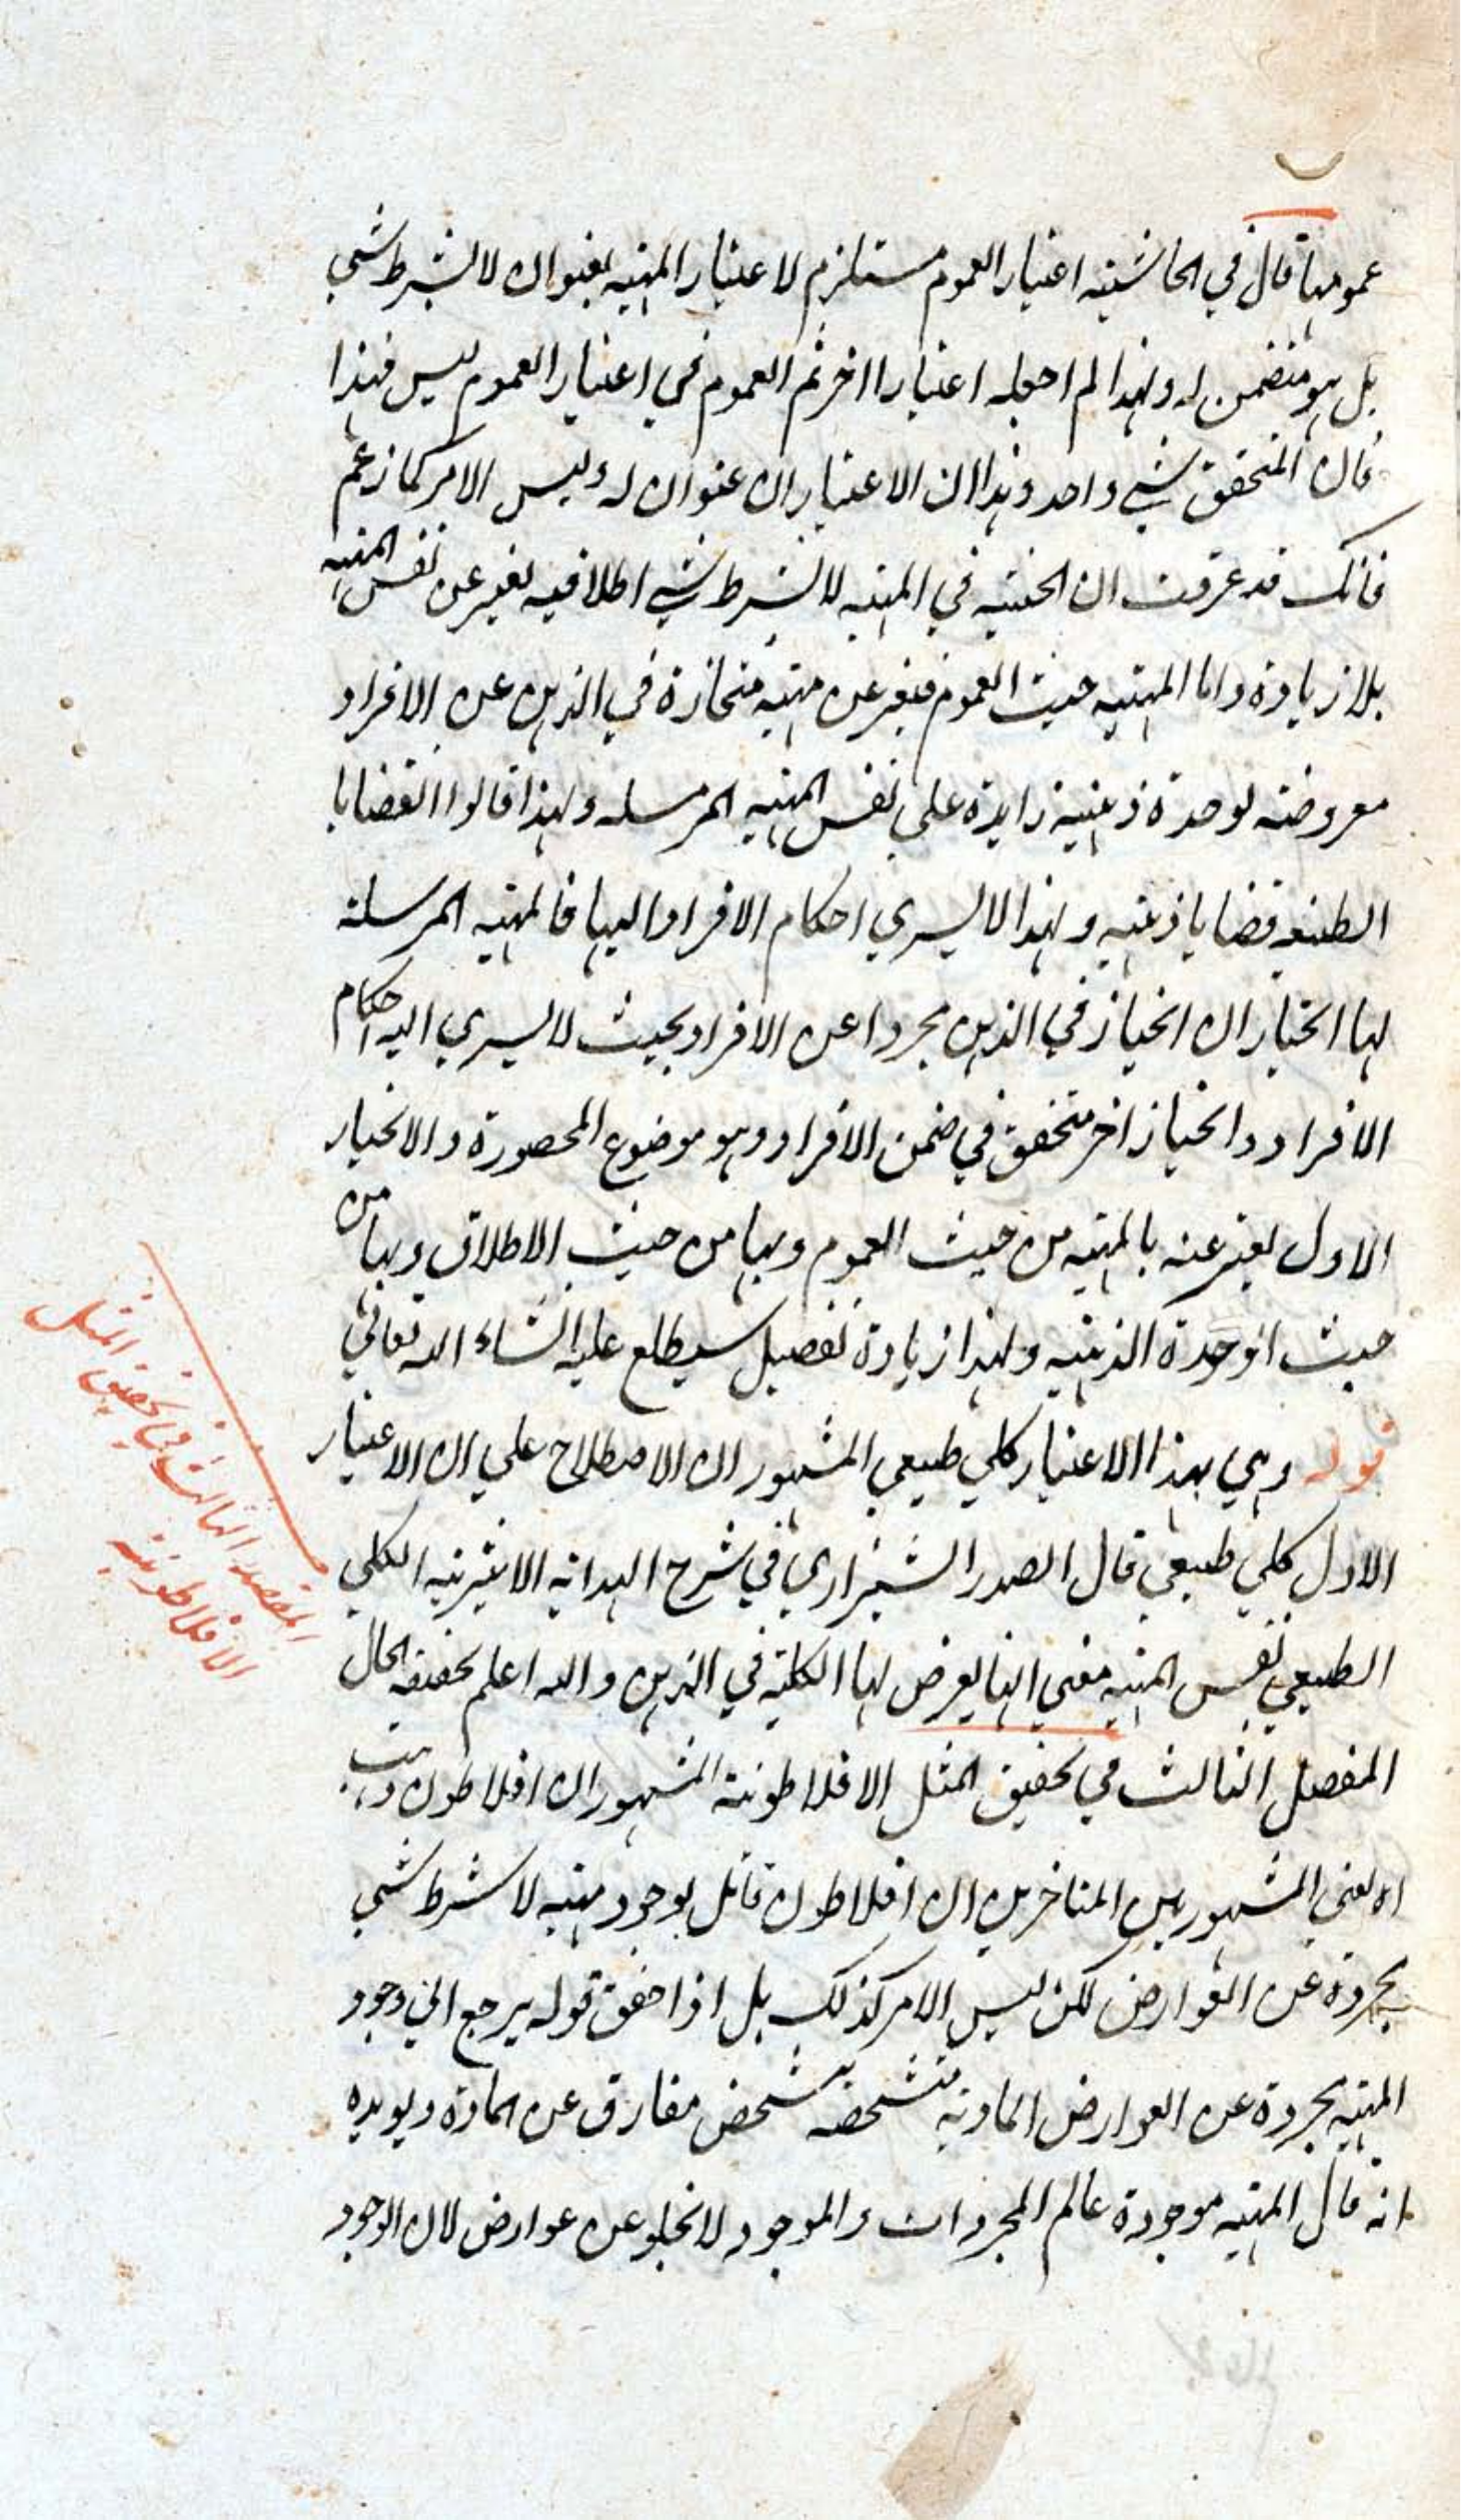 عمومها قال في الحاشية اعتبار العموم مستلزم لاعتبار المهية بعنوان لا بشرط شي
بل هو متضمن له ولهذا لم اجعله اعتبارا اخر ثم العموم في اعتبار العموم ليس فهذا
فان المتحقق شي واحد وهذا ان الاعتباران عنوان له وليس الامر كما زعم
فانك قد عرفت ان الحيثية في المهية لا بشرط شي اطلاقية تعبر عن نفس المهية
بلا زيادة واما المهية حيث العموم فتعبر عن مهية منحازة في الذهن عن الافراد
معروضة لوحدة ذهنية زايدة على نفس المهية المرسلة ولهذا قالوا القضايا
الطبعية قضايا ذهنية ولهذا لا يسري احكام الافراد اليها فالمهية المرسلة
لها انحيازان انحياز في الذهن مجردا عن الافراد بحيث لا يسري اليه احكام
الافراد وانحياز اخر متحقق في ضمن الافراد وهو موضوع المحصورة والانحياز
الاول يعبر عنه بالمهية من حيث العموم وبها من حيث الاطلاق وبها من
حيث الوحدة الذهنية ولهذا زيادة تفصيل سيطلع عليه انشاء الله تعالى
قوله وهي بهذا الاعتبار كلي طبيعي المشهور ان الاصطلاح على ان الاعتبار
الاول كلي طبيعي قال الصدر الشيرازي في شرح الهداية الاثيرية الكلي
الطبيعي نفس المهية معنى انها يعرض لها الكلية في الذهن والله اعلم بحقيقة الحال
المفصل الثالث في تحقيق المثل الافلاطونية المشهور ان افلاطون ذهب
اه يعني المشهور بين المتاخرين ان افلاطون قائل بوجود مهية لا بشرط شي
مجردة عن العوارض لكن ليس الامر كذلك بل اذا حقق قوله يرجع الى وجود
المهية مجردة عن العوارض المادية متشخصة بتشخص مفارق عن المادة ويويده
انه قال المهية موجودة عالم المجردات والموجود لا يخلو عن عوارض لان الوجود
المقصد الثالث في تحقيق المثل
الافلاطونية